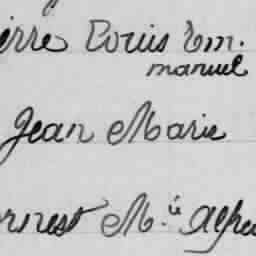 ierre Louis Em.
manuel
Jean Marie
rnest M.ie Alfre